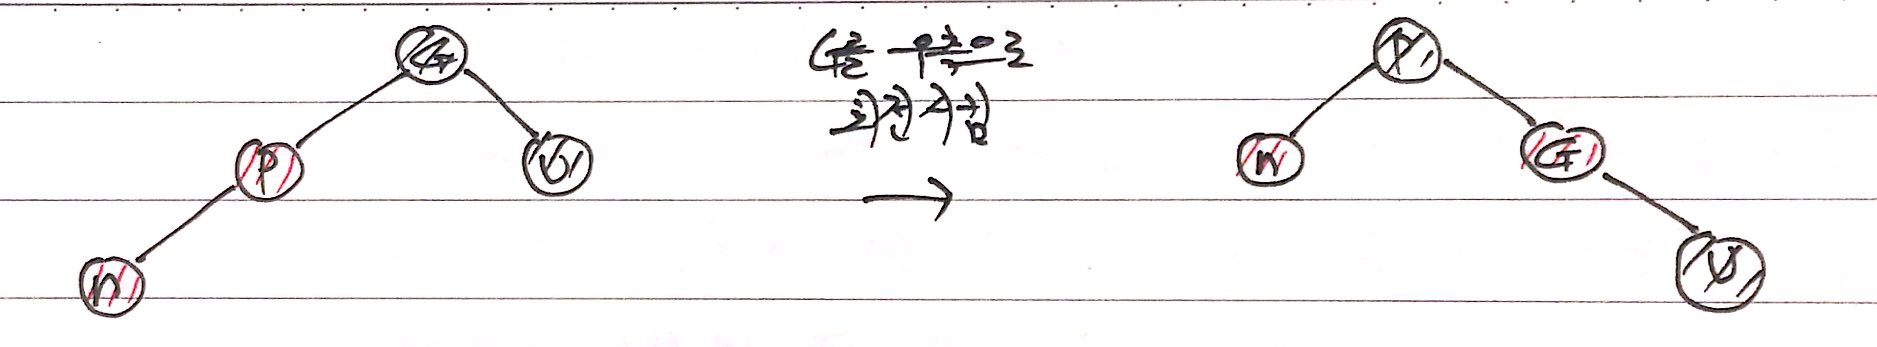 G
P
U
n
G를 우측으로
회전시킴
P
n
G
U